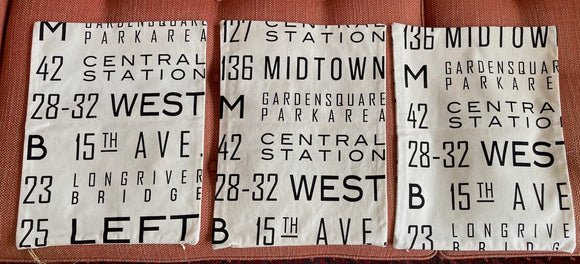 M GARDENSQUARE
PARKAREA
42 CENTRAL
STATION
28-32 WEST
B 15TH AVE.
23 LONGRIVER
BRIDGE
25 LEFT
127 CENTRAL
STATION
136 MIDTOWN
M GARDENSQUARE
PARKAREA
42 CENTRAL
STATION
28-32 WEST
B 15TH AVE.
136 MIDTOWN
M GARDENSQUAR
PARKARE
42 CENTRA
STATIO
28-32 WEST
B 15TH AVE
23 LONGRIVE
BRIDG